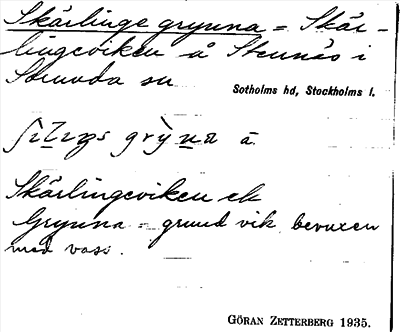 Skärlinge grynna = Skär-
lingeviken å Stennäs i
Sorunda sn
Sotholms hd, Stockholms l.
grỳna
Skärlingeviken el.
Grynna = grund vik bevuxen
med vass.
GÖRAN ZETTERBERG 1935.